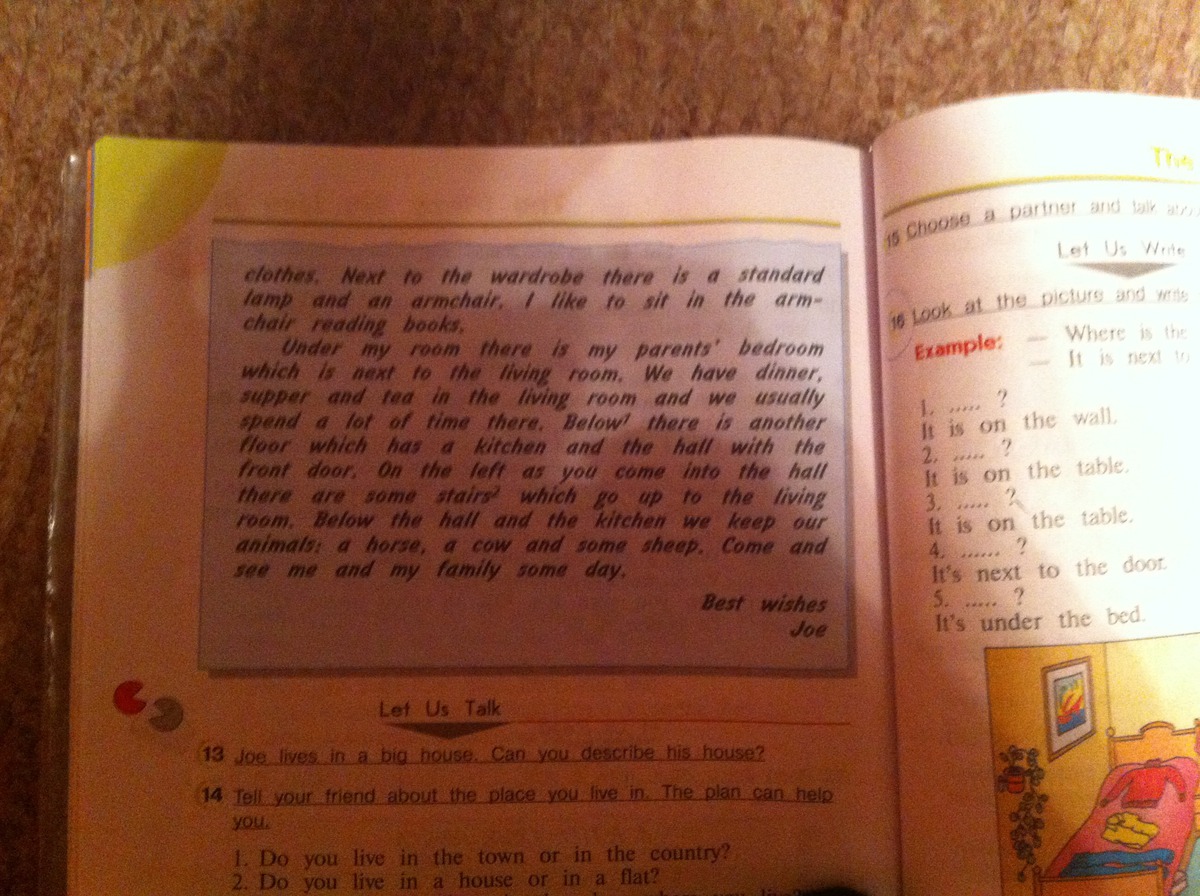 clothes. Next to the wardrobe there is a standard
lamp and an armchair. I like to sit in the arm-
chair reading books.
Under my room there is my parents' bedroom
which is next to the living room. We have dinner,
supper and tea in the living room and we usually
spend a lot of time there. Below¹ there is another
floor which has a kitchen and the hall with the
front door. On the left as you come into the hall
there are some stairs² which go up to the living
room. Below the hall and the kitchen we keep our
animals: a horse, a cow and some sheep. Come and
see me and my family some day.
Best wishes
Joe
Let Us Talk
13 Joe lives in a big house. Can you describe his house?
14 Tell your friend about the place you live in. The plan can help
you.
1. Do you live in the town or in the country?
2. Do you live in a house or in a flat?
The
15 Choose a partner and talk
Let Us Write
16 Look at the picture and write
Example: — Where is the
— It is next to
1. ..... ?
It is on the wall.
2. ..... ?
It is on the table.
3. ..... ?
It is on the table.
4. ...... ?
It's next to the door.
5. ..... ?
It's under the bed.